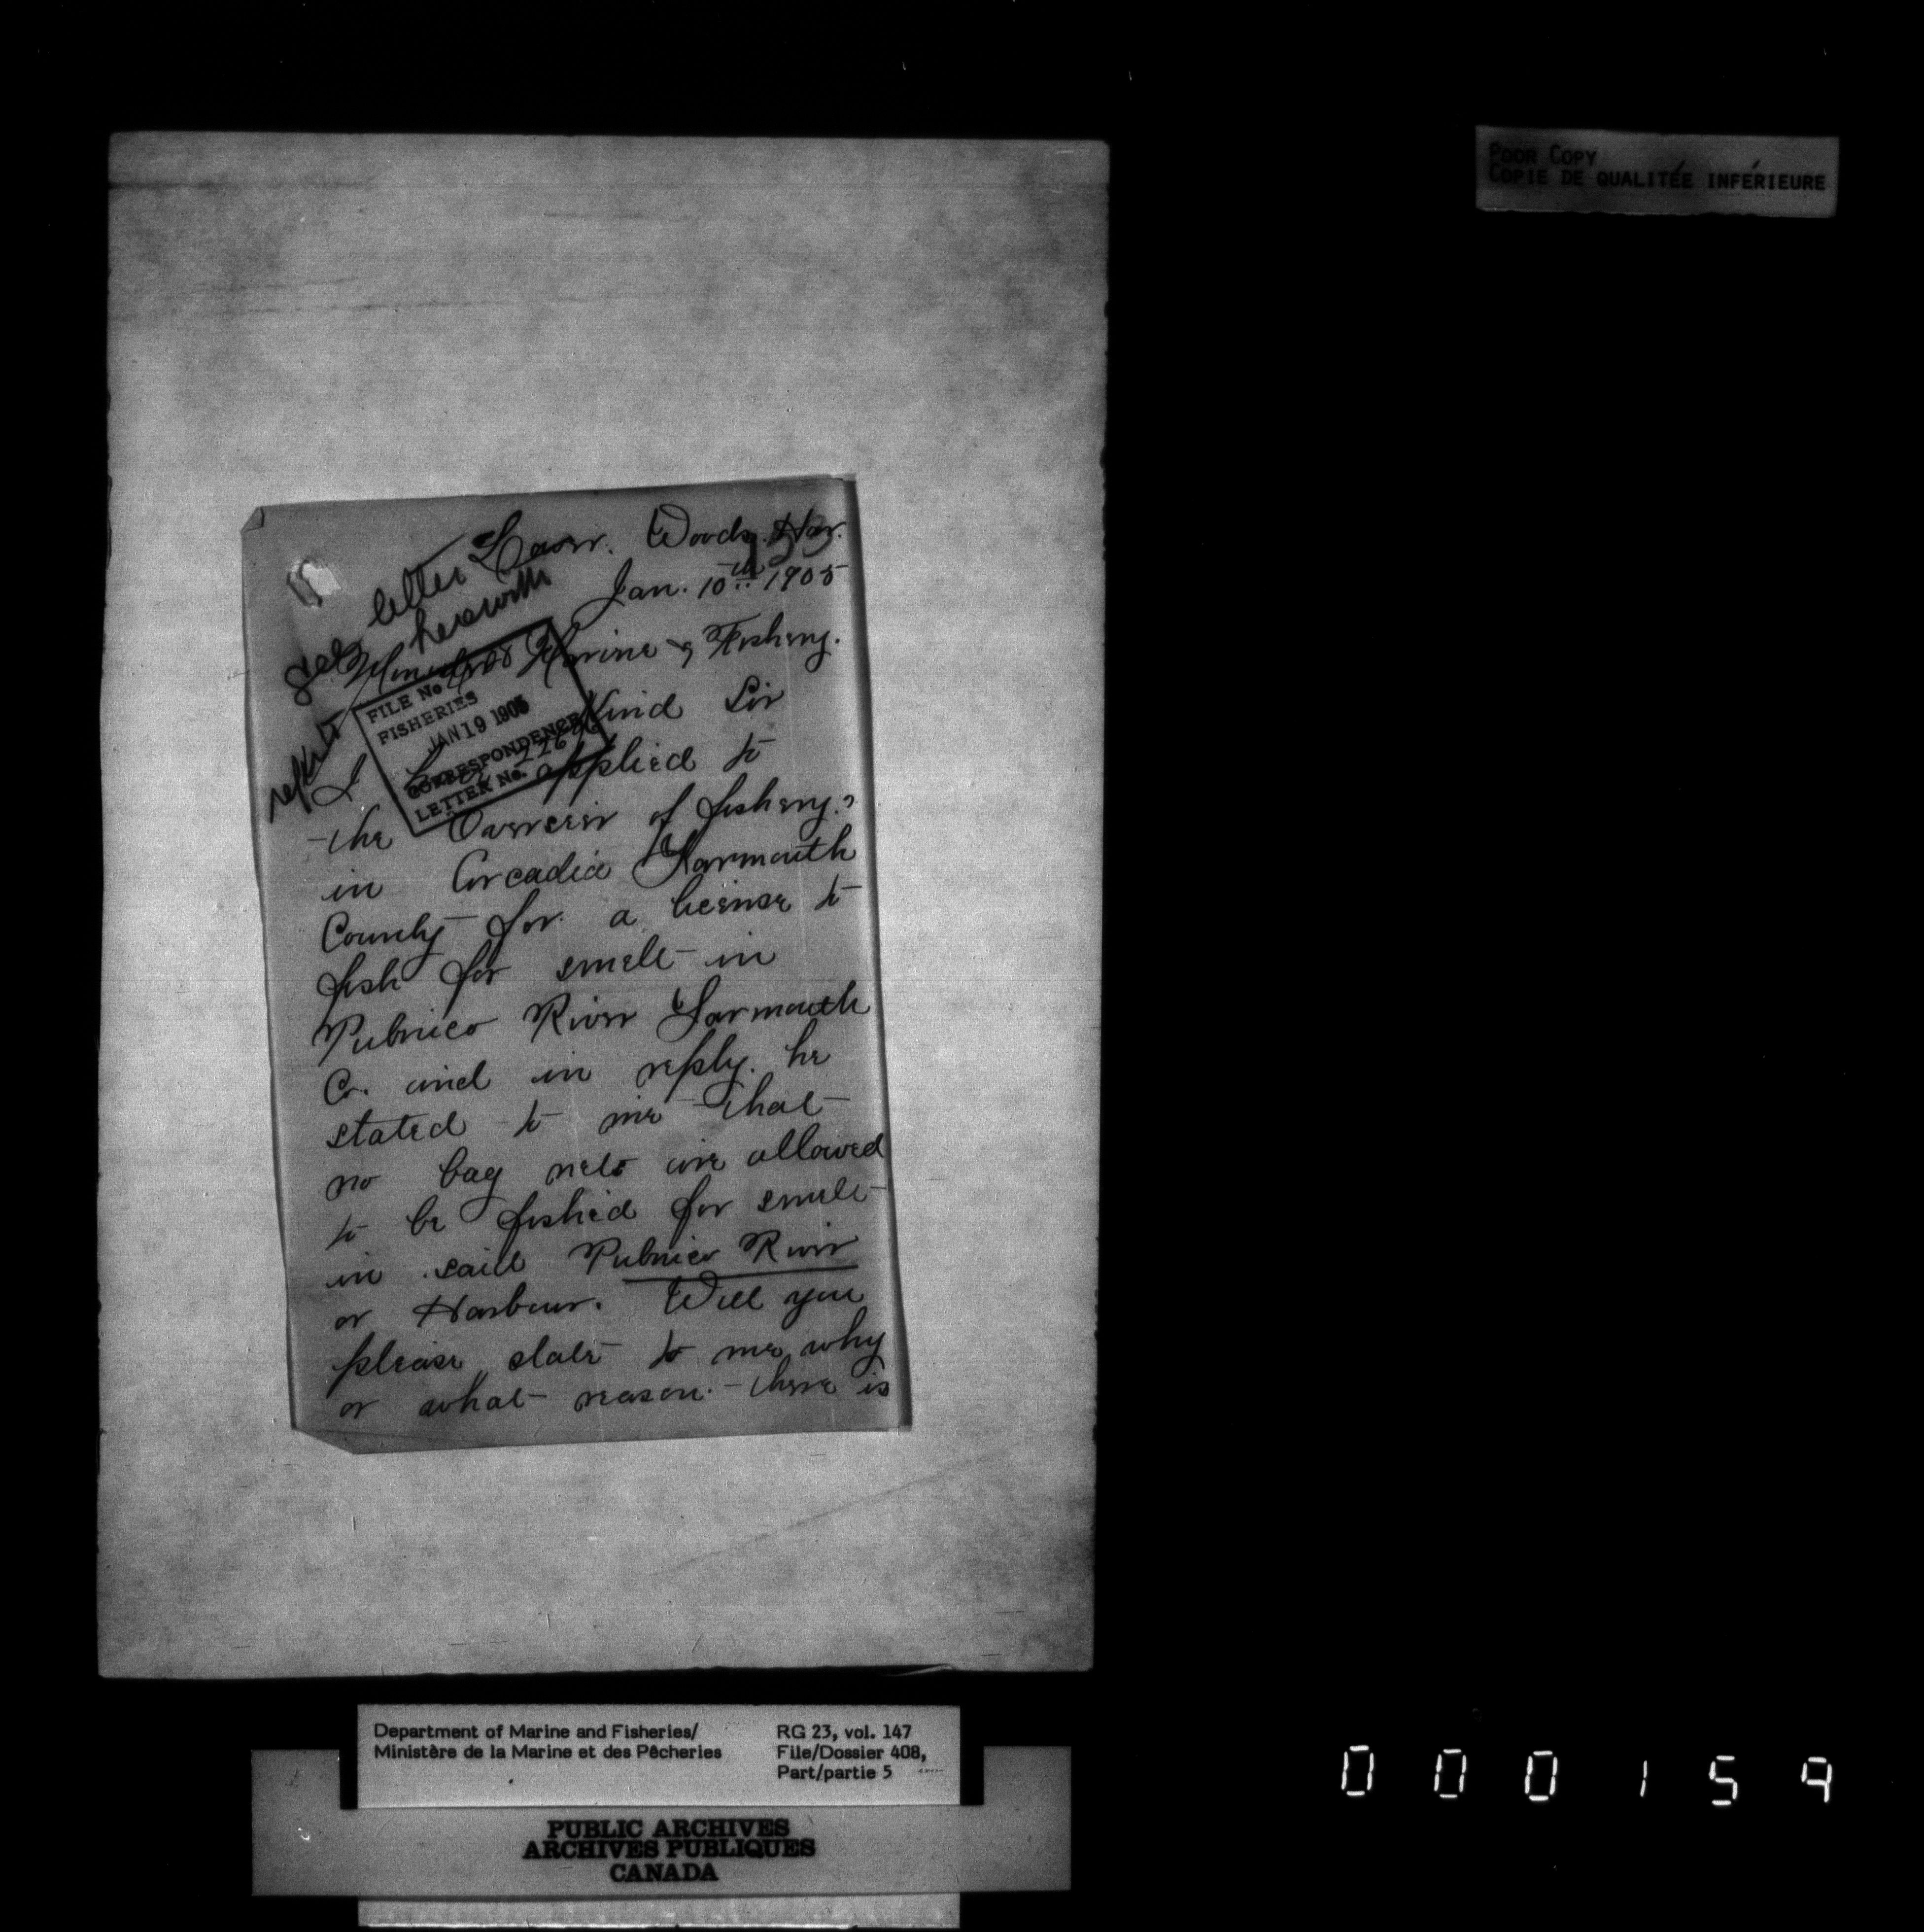 POOR COPY
COPIE DE QUALITÉE INFÉRIEURE
Lowr. Woods Har.
133
Jan. 10th 1905
see letter
herewith
Minister Marine & Fishery.
FILE No 408
FISHERIES
JAN 19 1905
CORRESPONDENCE
LETTER No. 226
Kind Sir
I have applied to
the Overseer of fishery
in Arcadia Yarmouth
County for a license to
fish for smelt in
Pubnico River Yarmouth
Co. and in reply he
stated to me that
no bag nets are allowed
to be fished for smelt
in said Pubnico River
or Harbour. Will you
please state to me why
or what reason there is
Department of Marine and Fisheries/
Ministère de la Marine et des Pêcheries
RG 23, vol. 147
File/Dossier 408,
Part/partie 5
PUBLIC ARCHIVES
ARCHIVES PUBLIQUES
CANADA
000159